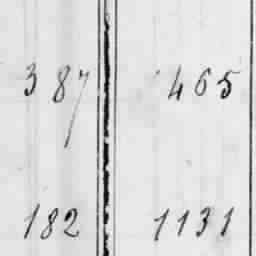 387 465
182 1131